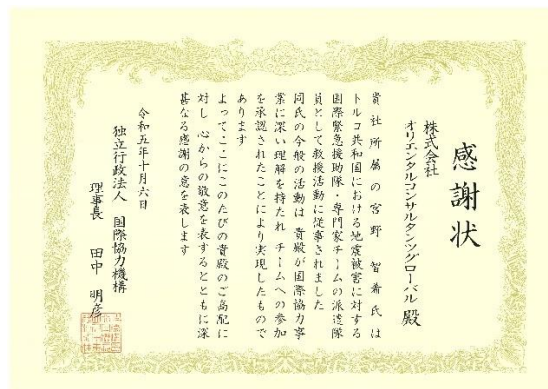 感謝状
株式会社
オリエンタルコンサルタンツグローバル 殿
貴社所属の宮野智希氏は
トルコ共和国における地震被害に対する
国際緊急援助隊・専門家チームの派遣隊
員として救援活動に従事されました
同氏の今般の活動は 貴殿が国際協力事
業に深い理解を持たれ チームへの参加
を承認されたことにより実現したもので
あります
よってここにこのたびの貴殿のご高配に
対し 心からの敬意を表するとともに深
甚なる感謝の意を表します
令和五年十月六日
独立行政法人 国際協力機構
理事長 田中 明彦